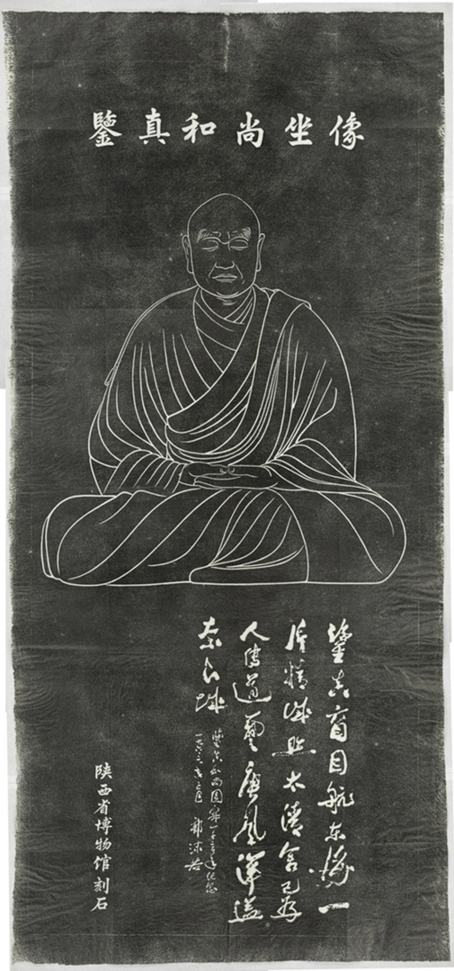 鑒真和尚坐像
鑒真盲目航東海一
片精誠照太清舍己為
人傳道藝唐風洋溢
奈良城
鑒真和尚圓寂一千二百年紀念
一九六三年三月 郭沫若
陕西省博物館刻石